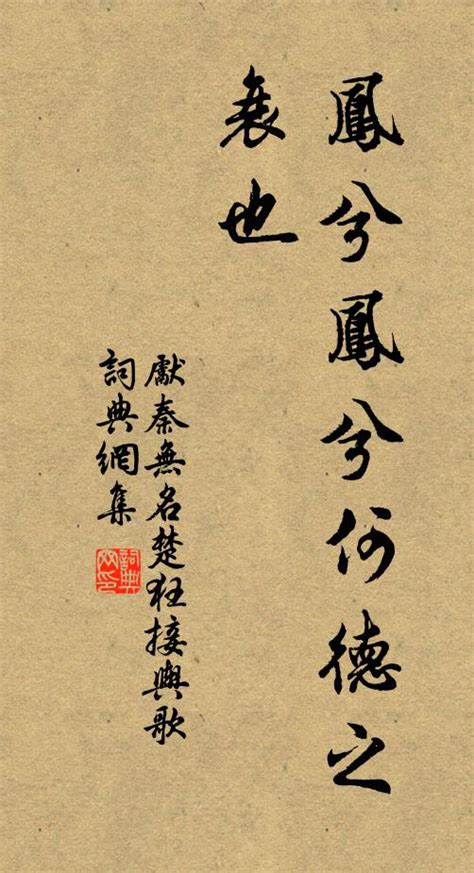 鳳兮鳳兮何德之
衰也
獻秦無名楚狂接輿歌
詞典網集
詞典
网印